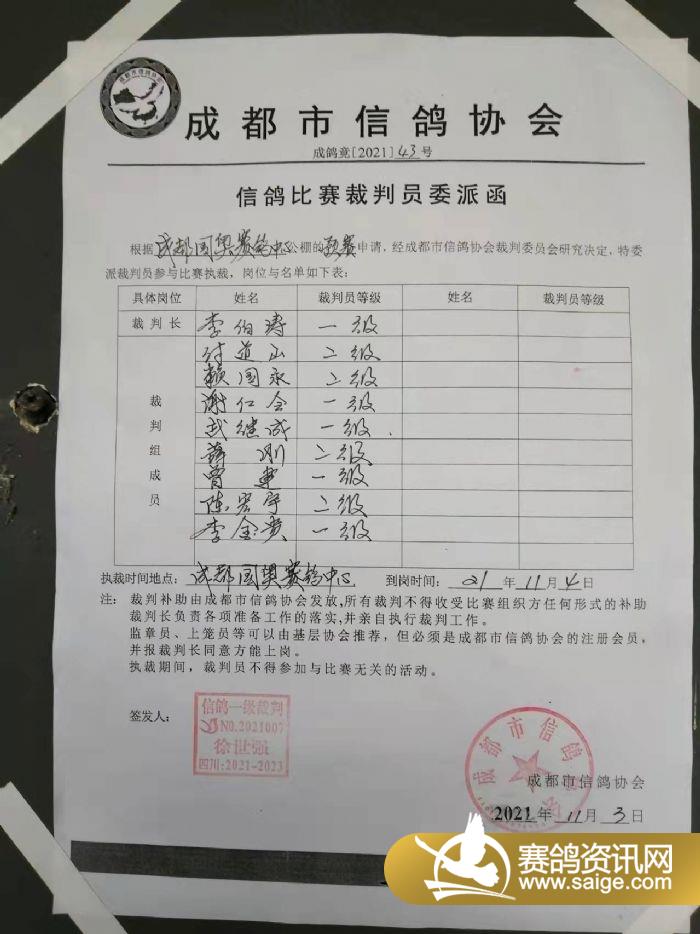 成都市信鸽协会
成鸽竞[2021]43号
信鸽比赛裁判员委派函
根据成都国奥赛鸽中心公棚的预赛申请，经成都市信鸽协会裁判委员会研究决定，特委
派裁判员参与比赛执裁，岗位与名单如下表：
具体岗位 姓名 裁判员等级 姓名 裁判员等级
裁判长 李伯涛 一级
付道山 二级
赖国永 二级
裁 谢仁会 一级
判 武继成 一级
组 薛刚 二级
成 曾建 一级
员 陈宏宇 二级
李金贵 一级
执裁时间地点：成都国奥赛鸽中心 到岗时间：21年11月4日
注：裁判补助由成都市信鸽协会发放，所有裁判不得收受比赛组织方任何形式的补助
裁判长负责各项准备工作的落实，并亲自执行裁判工作。
监章员、上笼员等可以由基层协会推荐，但必须是成都市信鸽协会的注册会员，
并报裁判长同意方能上岗。
执裁期间，裁判员不得参加与比赛无关的活动。
签发人：
信鸽一级裁判
NO.2021007
徐世强
四川：2021-2023
成都市信鸽协会
成都市信鸽协会
2021年11月3日
赛鸽资讯网
www.saige.com